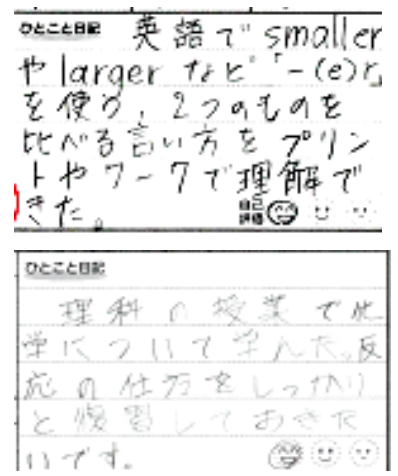 ひとこと日記 英語で smaller
や larger など「-(e)r」
を使う、2つのものを
比べる言い方をプリン
トやワークで理解で
きた。 自己評価
ひとこと日記
理科の授業で化
学について学んだ。反
応の仕方をしっかり
と復習しておきた
いです。